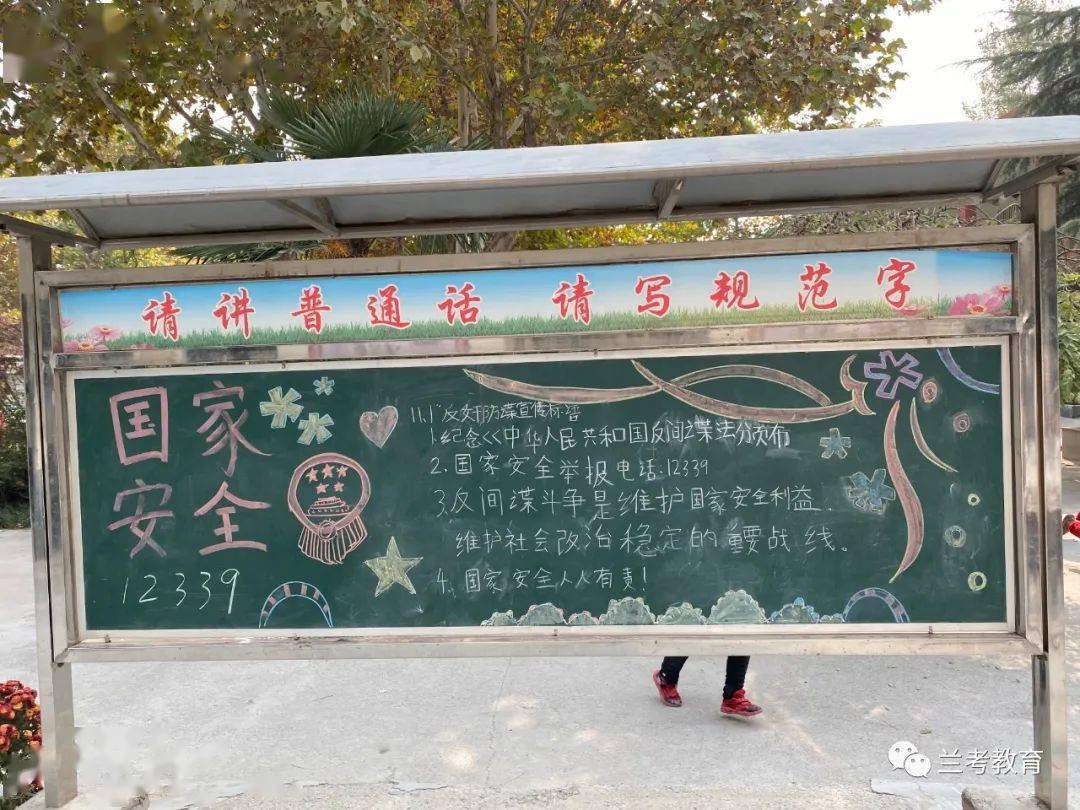 请讲普通话 请写规范字
国家
安全
12339
11.1反奸防谍宣传标语
1.纪念<<中华人民共和国反间谍法分发布
2.国家安全举报电话:12339
3.反间谍斗争是维护国家安全利益.
维护社会政治稳定的重要战线。
4.国家安全人人有责!
兰考教育